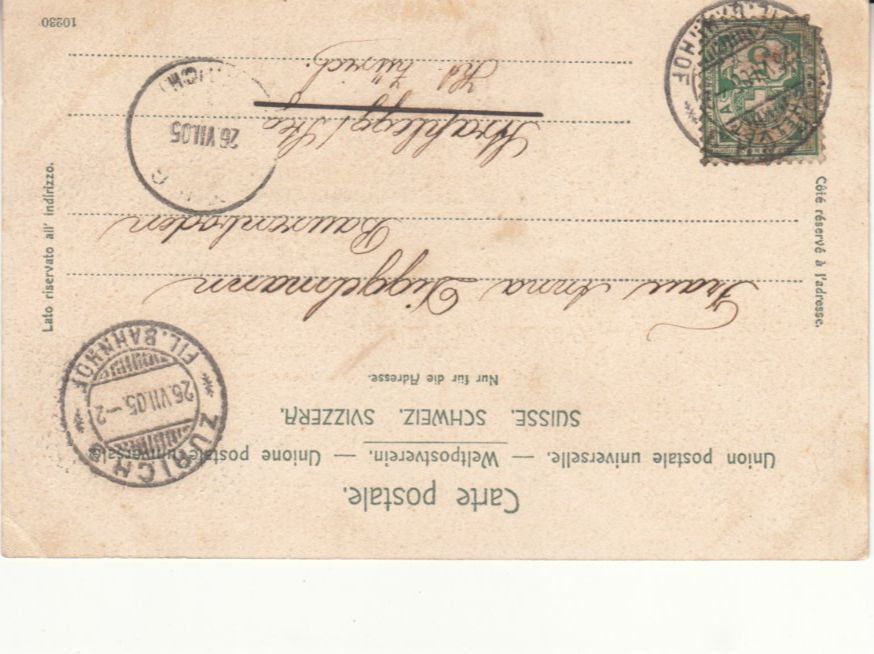 Carte postale.
Union postale universelle. — Weltpostverein. — Unione postale universale
SUISSE. SCHWEIZ. SVIZZERA.
Nur für die Adresse.
Côté réservé à l'adresse.
Lato riservato all' indirizzo.
Frau Anna Diggelmann
Strahlegg/
Kt. Zürich.
ZÜRICH
FIL. BAHNHOF
26.VII.05.-2
26 VII.05
BAHNHOF
10230